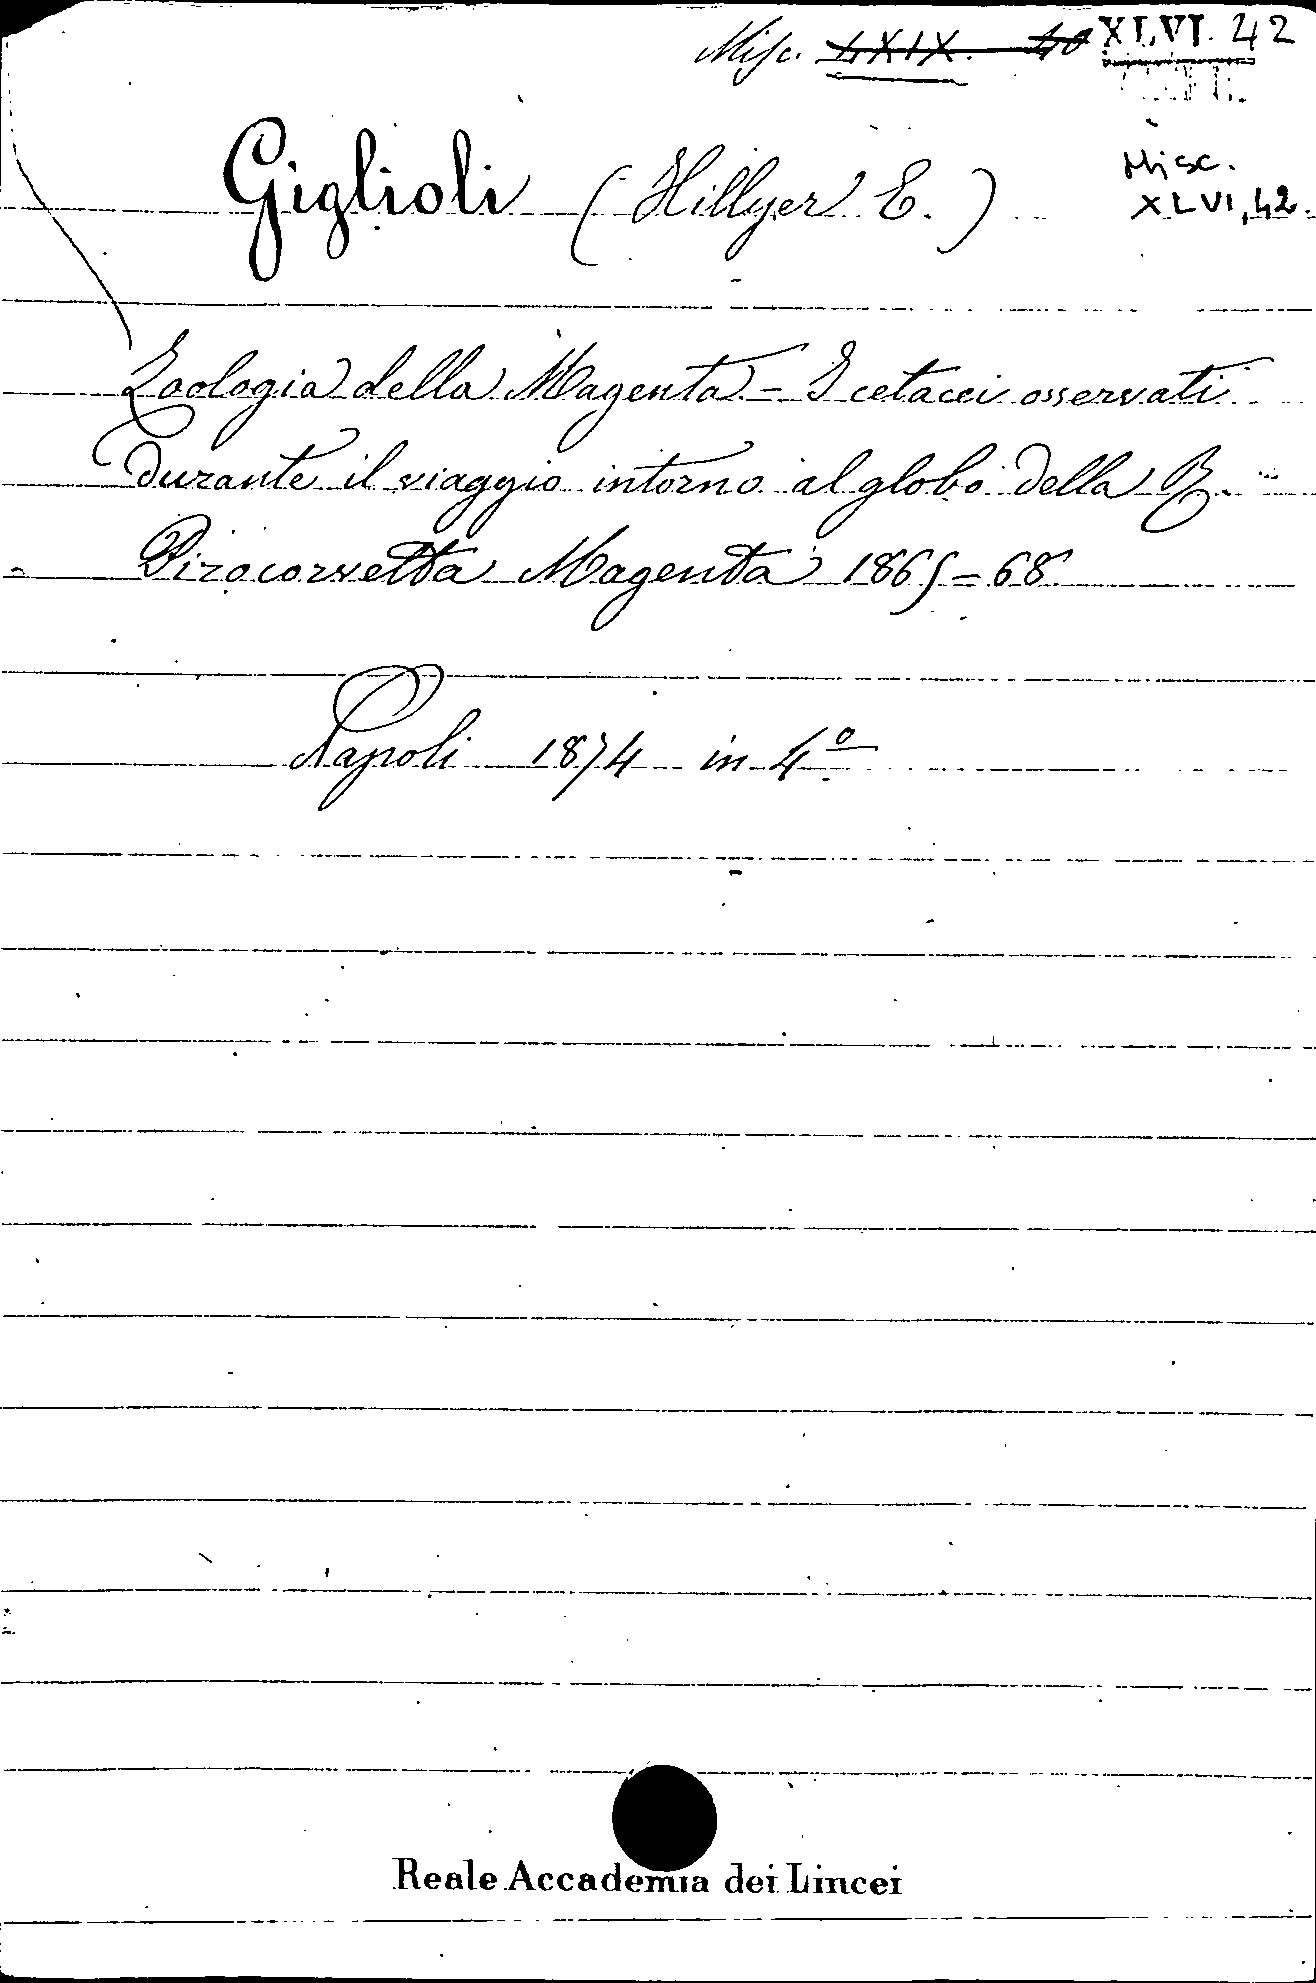 Misc. LXIX. 40 XLVI. 42
Giglioli (Hillyer E.)
Misc.
XLVI, 42.
Zoologia della Magenta - I cetacei osservati
durante il viaggio intorno al globo della R.
Pirocorvetta Magenta 1865=68
Napoli 1874 in 4º
Reale Accademia dei Lincei